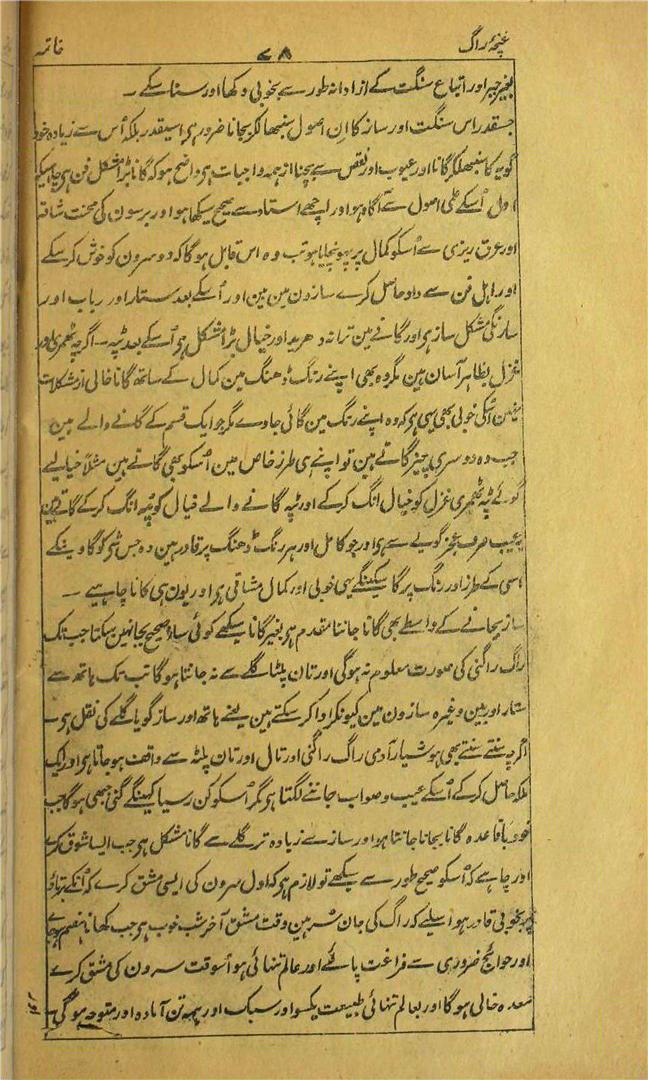 غنچۂ راگ ۷۸ خاتمہ
بغیر جبر اور اتباع سنگت کے ازادانہ طور سے بخوبی دکھا اور سنا سکے ۔
جسقدر اس سنگت اور سازندہ کا ان اصول سنبھالکر بجانا ضرور ہی اسیقدر بلکہ اُس سے زیادہ خود
گویہ کا سنبھلکر گانا اور عیوب اور نقص سے بچنا از ہمہ واجبات ہی واضح ہو کہ گانا بڑا مشکل فن ہی چاہیئے
اول اُسکے علمی اصول سے آگاہ ہو اور اچھے استاد سے صحیح سیکھا ہو اور برسون کی محنت شاقہ
اور عرق ریزی سے اُسکو کمال پر پہونچایا ہو تب وہ اس قابل ہوگا کہ دوسرون کو خوش کر سکے
اور اہل فن سے داد حاصل کرے سازون مین بین اور اُسکے بعد ستار اور رباب اور
سارنگی مشکل ساز ہی اور گانے مین ترانہ دھرپد اور خیال بڑا مشکل ہی اُسکے بعد ٹپہ ۔ اگرچہ ٹھمری اور
غزل بظاہر آسان ہین مگر وہ بھی اپنے رنگ ڈھنگ مین کمال کے ساتھ گانا خالی از مشکلات
نہین اُسکی خوبی بھی یہی ہی کہ وہ اپنے رنگ مین گائی جاوے مگر جو ایک قسم کے گانے والے ہین
جب وہ دوسری چیز گاتے ہین تو اپنے ہی طرز خاص مین اُسکو بھی گاتے ہین مثلاً خیالیے
گوئے ٹپہ ٹھمری غزل کو خیال انگ کرکے اور ٹپہ گانے والے خیال کو ٹپہ انگ کر کے گاتے ہین
یہ عیب صرف عجز گویے سے ہی اور جو کامل اور ہر رنگ ڈھنگ پر قادر ہین وہ جس شی کو گاوینگے
اسی کے طرز اور رنگ پر گا سکینگے یہی خوبی اور کمال مشاقی ہی اور یون ہی گانا چاہیے ۔
ساز بجانے کے واسطے بھی گانا جاننا مقدم ہی بغیر گانا سیکھے کوئی ساز صحیح بجا نہین سکتا جب تک
راگ راگنی کی صورت معلوم نہ ہوگی اور تان پلٹا گلے سے نہ جانتا ہوگا تب تک ہاتھ سے
ستار اور بین وغیرہ سازون مین کیونکر ادا کر سکتے ہین یعنے ہاتھ اور ساز گویا گلے کی نقل ہی ۔
اگرچہ سنتے سنتے بھی ہوشیار آدمی راگ راگنی اور تال اور تان پلٹہ سے واقف ہو جاتا ہی اور ایک
ملکہ حاصل کر کے اُسکے عیب و صواب جاننے لگتا ہی مگر اُسکو کن رسیا کہینگے گنی جبھی ہوگا جب
خود باقاعدہ گانا بجانا جانتا ہو اور ساز سے زیادہ تر گلے سے گانا مشکل ہی جب ایسا شوق کرے
اور چاہے کہ اُسکو صحیح طور سے سیکھے تو لازم ہی کہ اول سرون کی ایسی مشق کرے کہ اُنکے
پر بخوبی قادر ہو اسلیے کہ راگ کی جان سر ہین وقت مشق آخر شب خوب ہی جب کھانا ہضم ہو
اور حوائج ضروری سے فراغت پائے اور عالم تنہائی ہو اُسوقت سرون کی مشق کرے
معدہ خالی ہوگا اور بعالم تنہائی طبیعت یکسو اور سبک اور ہمہ تن آمادہ اور متوجہ ہوگی ۔